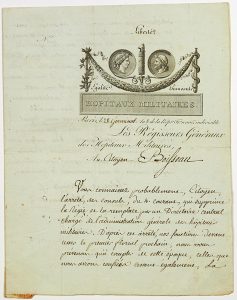 Liberté
Egalité
Humanité
HOPITAUX MILITAIRES
Paris, le 28 Germinal de la République
Les Régisseurs Généraux
des Hôpitaux Militaires
Au Citoyen
Vous connaissez probablement, Citoyen
l'arrêté des consuls du 4 courant, qui supprime
la Régie et la remplace par un Directoire central
chargé de l'administration générale des hôpitaux
militaires. D'après cet arrêté nos fonctions devront
cesser le premier floréal prochain
par qui compte de cette époque, celles que
nous avions cesseront également. La